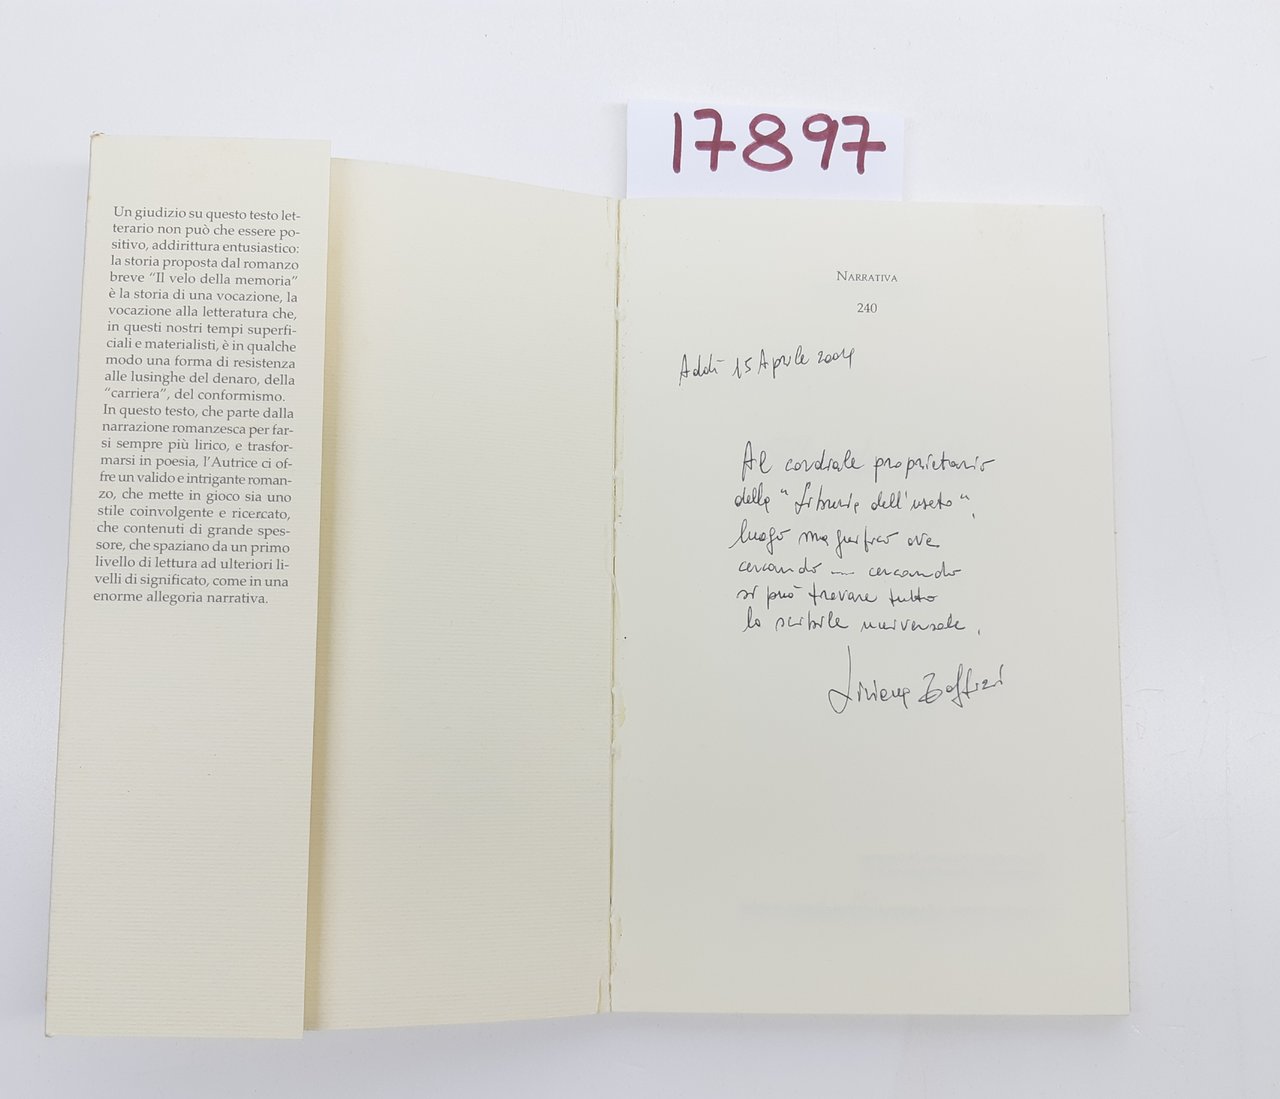 17897
Un giudizio su questo testo let-
terario non può che essere po-
sitivo, addirittura entusiastico:
la storia proposta dal romanzo
breve “Il velo della memoria”
è la storia di una vocazione, la
vocazione alla letteratura che,
in questi nostri tempi superfi-
ciali e materialisti, è in qualche
modo una forma di resistenza
alle lusinghe del denaro, della
“carriera”, del conformismo.
In questo testo, che parte dalla
narrazione romanzesca per far-
si sempre più lirico, e trasfor-
marsi in poesia, l’Autrice ci of-
fre un valido e intrigante roman-
zo, che mette in gioco sia uno
stile coinvolgente e ricercato,
che contenuti di grande spes-
sore, che spaziano da un primo
livello di lettura ad ulteriori li-
velli di significato, come in una
enorme allegoria narrativa.
Narrativa
240
Addì 15 Aprile 2004
Al cordiale proprietario
della "Libreria dell'usato",
luogo magnifico ove
cercando ... cercando
si può trovare tutto
lo scibile universale.
Liviana